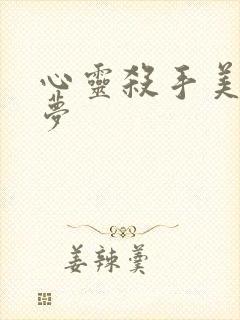 心靈殺手美
夢
姜辣羹